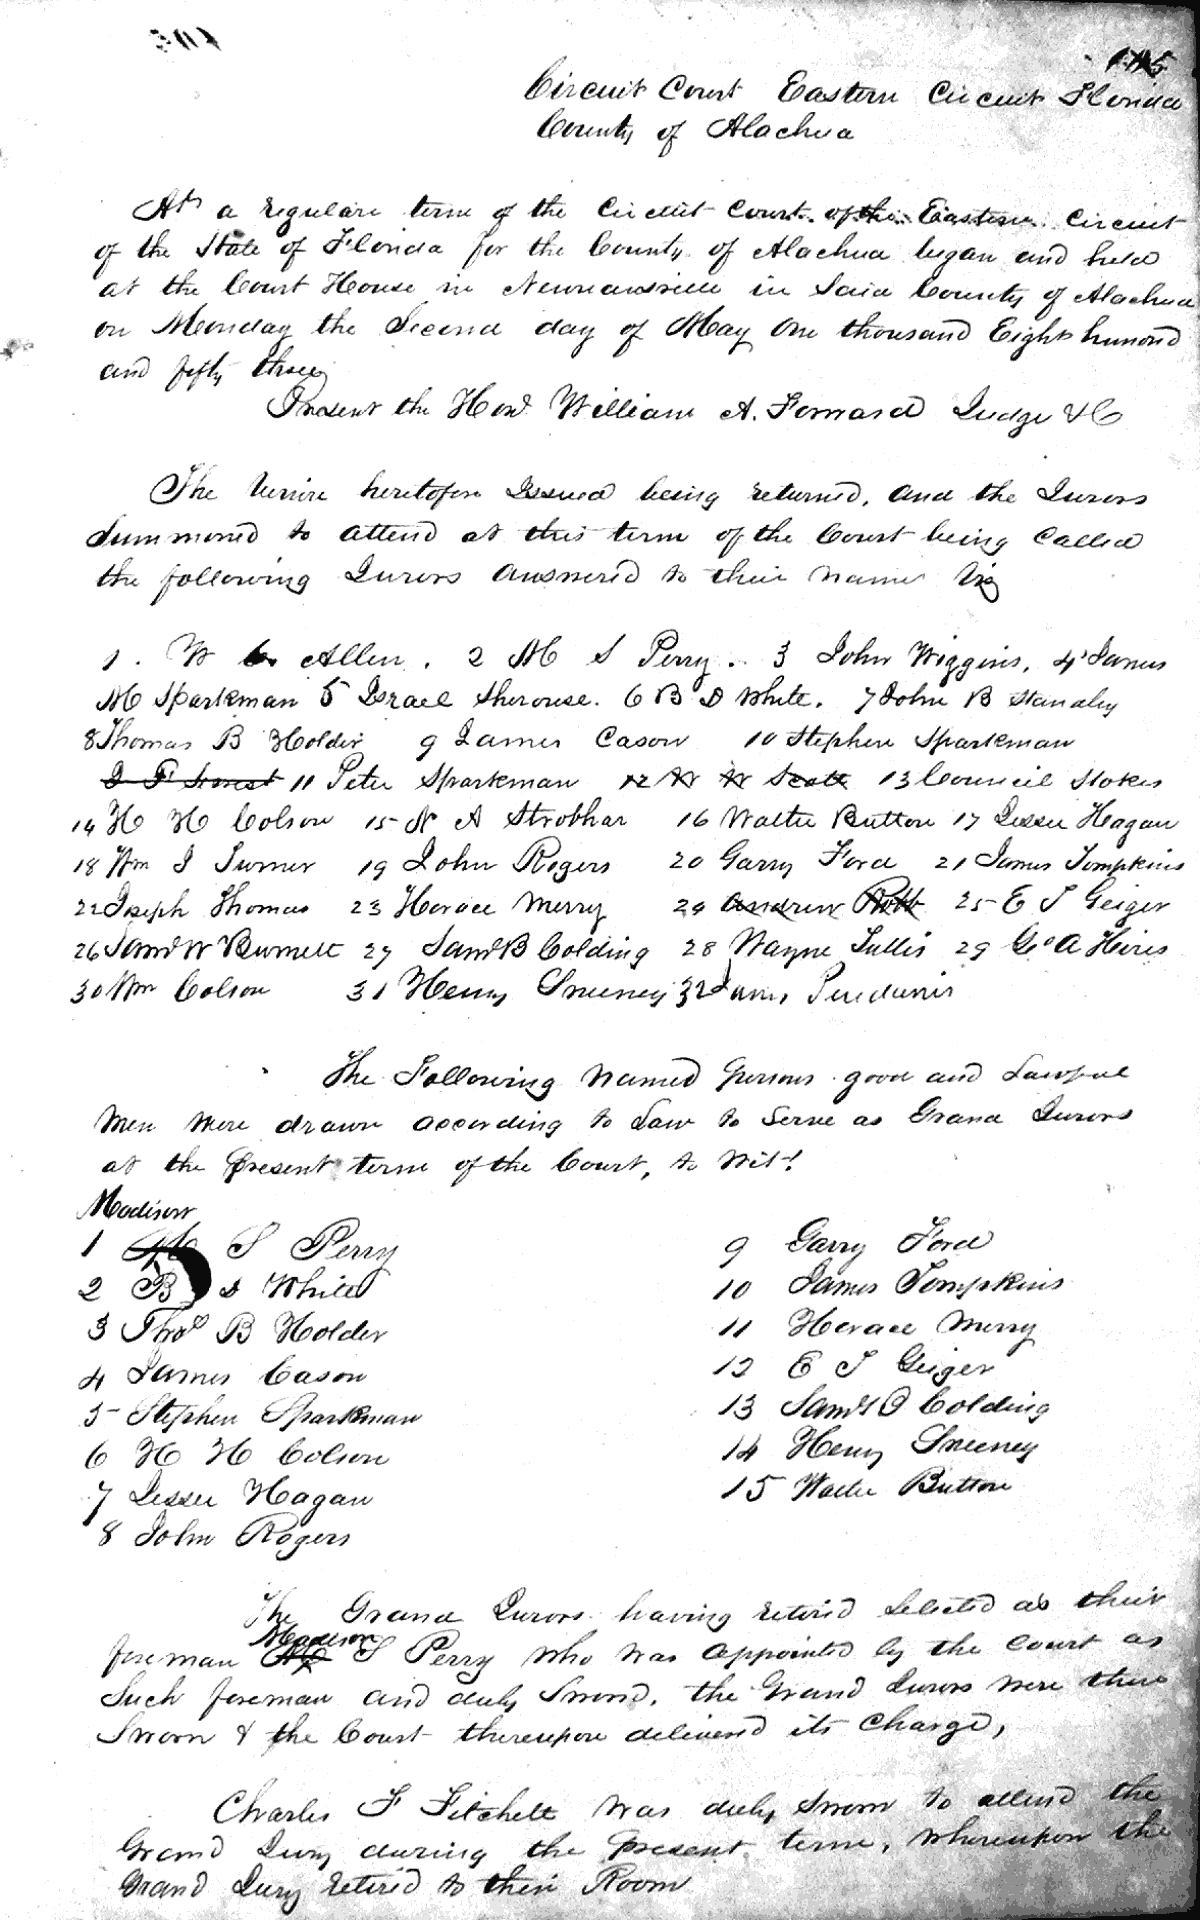 115
Circuit Court Eastern Circuit Florida
County of Alachua
At a regular term of the Circuit Court of the Eastern Circuit
of the State of Florida for the County of Alachua began and held
at the Court House in Newnansville in Said County of Alachua
on Monday the Second day of May one thousand Eight hundred
and fifty three
Present the Hon William A. Forward Judge &C
The Venire heretofore Issued being returned, and the Jurors
Summoned to attend at this term of the Court being Called
the following Jurors answered to their names Viz
1. W C Allen. 2 M S Perry. 3 John Wiggins, 4 James
M Sparkman 5 Israel Sherouse. 6 B D White. 7 John B Standley
8 Thomas B Holder 9 James Cason 10 Stephen Sparkman
11 Peter Sparkman 12 W W Scott 13 Council Stokes
14 H H Colson 15 N A Strobhar 16 Walter Button 17 Jessee Hagan
18 Wm J Turner 19 John Rogers 20 Garry Ford 21 James Tompkins
22 Joseph Thomas 23 Horace Merry 24 Andrew Robb 25 E T Geiger
26 Saml W Burnett 27 Saml B Colding 28 Wayne Tullis 29 Geo A Hires
30 Wm Colson 31 Henry Sweeney 32 James
The Following named persons good and Lawful
men were drawn according to Law to Serve as Grand Jurors
at the Present term of the Court, to Wit!
Madison
1 M S Perry
2 B D White
3 Thos B Holder
4 James Cason
5 Stephen Sparkman
6 H H Colson
7 Jessee Hagan
8 John Rogers
9 Garry Ford
10 James Tompkins
11 Horace Merry
12 E T Geiger
13 Saml B Colding
14 Henry Sweeney
15 Walter Button
The Grand Jurors having retired Selected as their
Madison
foreman S Perry who was appointed by the Court as
Such foreman and duly Sword, the Grand Jurors were then
Sworn & the Court thereupon delivered its Charge,
Charles F Fitchett was duly Sworn to attend the
Grand Jury during the Present term, whereupon the
Grand Jury retired to their Room